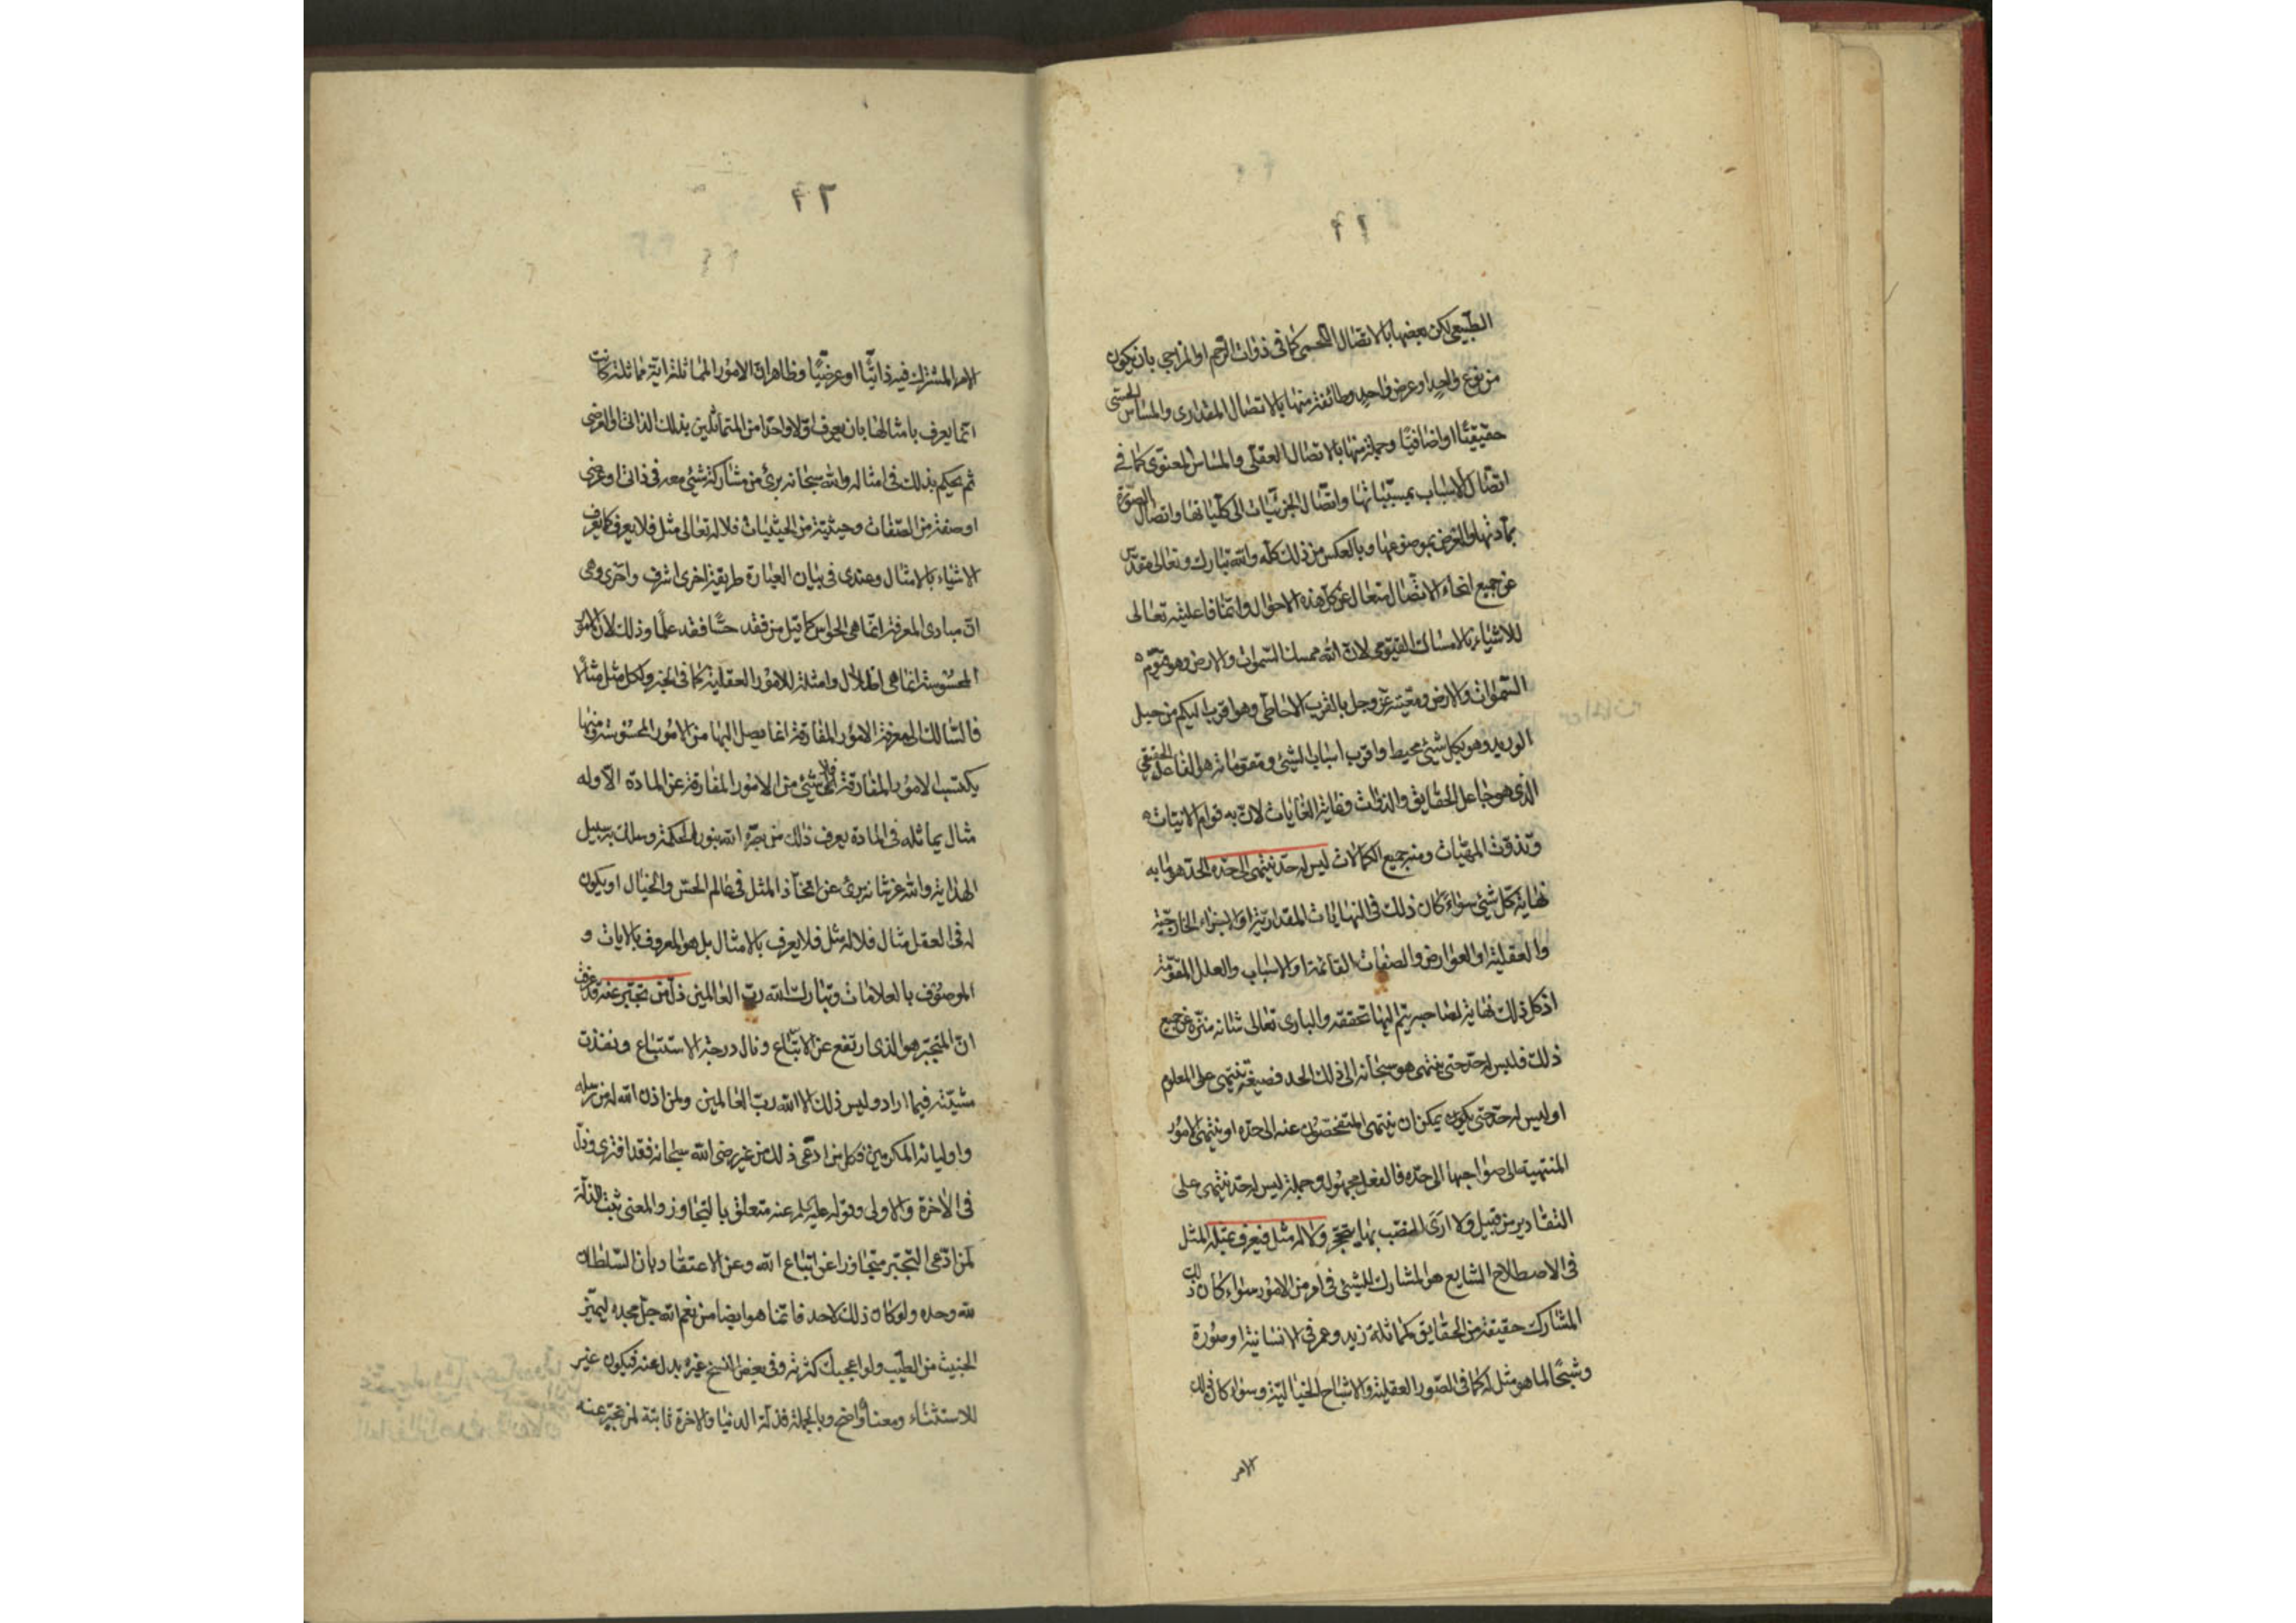 ٦١
الطبيعي لكن بعضها بالاتصال الجسمي كما في ذوات الرحم او المزاجي بان يكون
من نوع واحد او عرض واحد وطائفة منها بالاتصال المقداري والمماس الحسّي
حقيقيّا او اضافيّا وجملة منها بالاتصال العقلي والمماس المعنوي كما في
اتصال الاسباب بمسبّباتها واتصال الجزئيات الى كلّياتها واتصال الصورة
بمادتها والعرض بموضوعها وبالعكس من ذلك كله والله تبارك وتعالى مقدّس
عن جميع انحاء الاتصال متعال عن كل هذه الاحوال وانّما فاعليّته تعالى
للاشياء بالامساك القيّومي لان الله ممسك السموات والارض وهو مقوّم
السموات والارض ومعيّته عزّ وجل بالقرب الاحاطي وهو اقرب اليكم من حبل
الوريد وهو بكل شيئ محيط واقرب اسباب الشيئ ومقوماته هو الفاعل الحقيقي
الذي هو جاعل الحقايق والذوات وغاية الغايات لان به قوام الانيّات
وتذوّت المهيّات ومنه جميع الكمالات ليس له حدّ ينتهى الى حدّه الحدّ هو ما به
نهاية كل شيئ سواء كان ذلك في النهايات المقداريّة او الاجزاء الخارجيّة
والعقلية او العوارض والصفات القائمة او الاسباب والعلل المقوّمة
اذ كل ذلك نهاية لصاحبه يتم اليها تحققه والباري تعالى شانه منزّه عن جميع
ذلك فليس له حدّ حتى ينتهى هو سبحانه الى ذلك الحد فصيغة ينتهى على المعلوم
او ليس له حدّ حتى يكون يمكن ان ينتهى المتفحّصون عنه الى حدّه او ينتهى الامور
المنتهية الى صواحبها الى حدّه فالفعل مجهول وجملة ليس له حدّ ينتهى على
التقادير من قبيل ولا ارى الضبّ بها ينجحر ولا له مثل فيعرف بمثله المثل
في الاصطلاح الشايع هو المشارك للشيئ في امر من الامور سواء كان ذلك
المشارك حقيقة من الحقايق كمماثلة زيد وعمرو في الانسانية او صورة
وشبحًا لما هو مثل له كما في الصور العقلية والاشباح الخيالية وسواء كان ذلك
الامر
٦٢
الامر المشترك فيه ذاتيّا او عرضيّا وظاهر ان الامور المماثلة ايّة مماثلة كانت
انّما يعرف بامثالها بان يعرف اوّلا واحدا من المتماثلين بذلك الذاتي او العرضي
ثم يحكم بذلك في امثاله والله سبحانه برئ من مشاركة شيئ معه في ذاتي او عرضي
او صفة من الصّفات وحيثيّة من الحيثيات فلا له تعالى مثل فلا يعرف كما يعرف
الاشياء بالامثال وعندى في بيان العبارة طريقة اخرى اشرف واحرى وهي
انّ مبادي المعرفة انّما هي الحواس كما قيل من فقد حسّا فقد علمًا وذلك لان الامور
المحسوسة انما هي اظلال وامثلة للامور العقلية كما في الخبر ولكل مثل مثالا
فالسّالك الى معرفة الامور المفارقة انما يصل اليها من الامور المحسوسة ومنها
يكتسب الامور المفارقة فلا شيئ من الامور المفارقة عن المادة الّا وله
مثال يماثله في المادة يعرف ذلك من بصّره الله بنور الحكمة وسلك به سبيل
الهداية والله عزّ شانه برئ عن اتخاذ المثل في عالم الحسّ والخيال او يكون
له في العقل مثال فلا له مثل فلا يعرف بالامثال بل هو المعروف بالايات و
الموصوف بالعلامات وتبارك الله ربّ العالمين ذلّ من تجبّر عنه قد عرفت
انّ المتجبّر هو الذي ارتفع عن الاتّباع ونال درجة الاستتباع ونفذت
مشيّته فيما اراد وليس ذلك الا الله ربّ العالمين ولمن اذن الله له من رسله
واوليائه المكرمين فكل من ادّعى ذلك من غير رضى الله سبحانه فقد افترى وذلّ
في الاخرة والاولى وقوله عليه السلم عنه متعلّق بالتجاوز والمعنى ثبت الذلّة
لمن ادّعى التجبّر متجاوزا عن اتّباع الله وعن الاعتقاد بان السّلطان
لله وحده ولو كان ذلك لاحد فانّما هو ايضا من نعم الله جلّ مجده ليميّز
الخبيث من الطّيب ولو اعجبك كثرته وفي بعض النسخ غيره بدل عنه فيكون غير
للاستثناء ومعناه واضح وبالجملة فذلّة الدنيا والاخرة ثابتة لمن تجبّر عنه